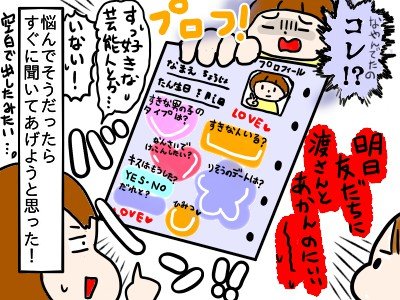 なやんでたの
コレ!?
プロフ!
すっ好きな
芸能人とか…
いない!
プロフィール
なまえ ちょうじょ
たん生日 ?月?日
LOVE♥
すきな男の子の
タイプは?
すきな人いる?
なんさいで
けっこんしたい?
りそうのデートは?
キスはもうした?
YES・NO
だれと?
ひみつ♥
LOVE♥
明日
友だちに
渡さんと
あかんのにいい
!!
悩んでそうだったら
すぐに聞いてあげようと思った!
空白で出したみたい…。